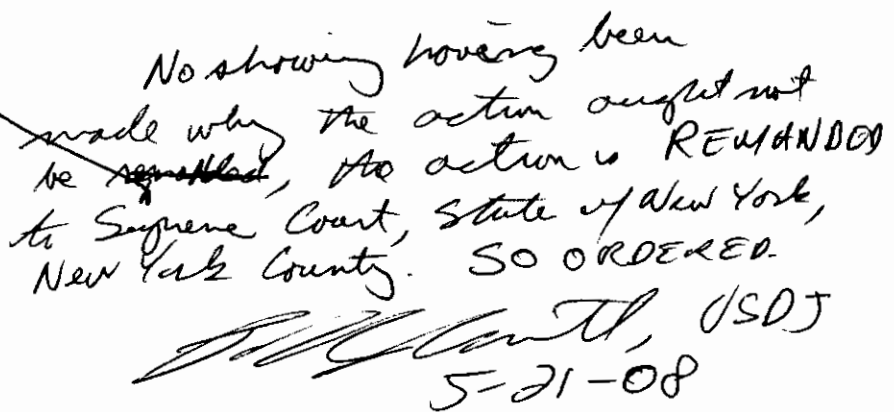 No showing having been
made why the action ought not
be remanded, the action is REMANDED
to Supreme Court, State of New York,
New York County. SO ORDERED.
USDJ
5-21-08